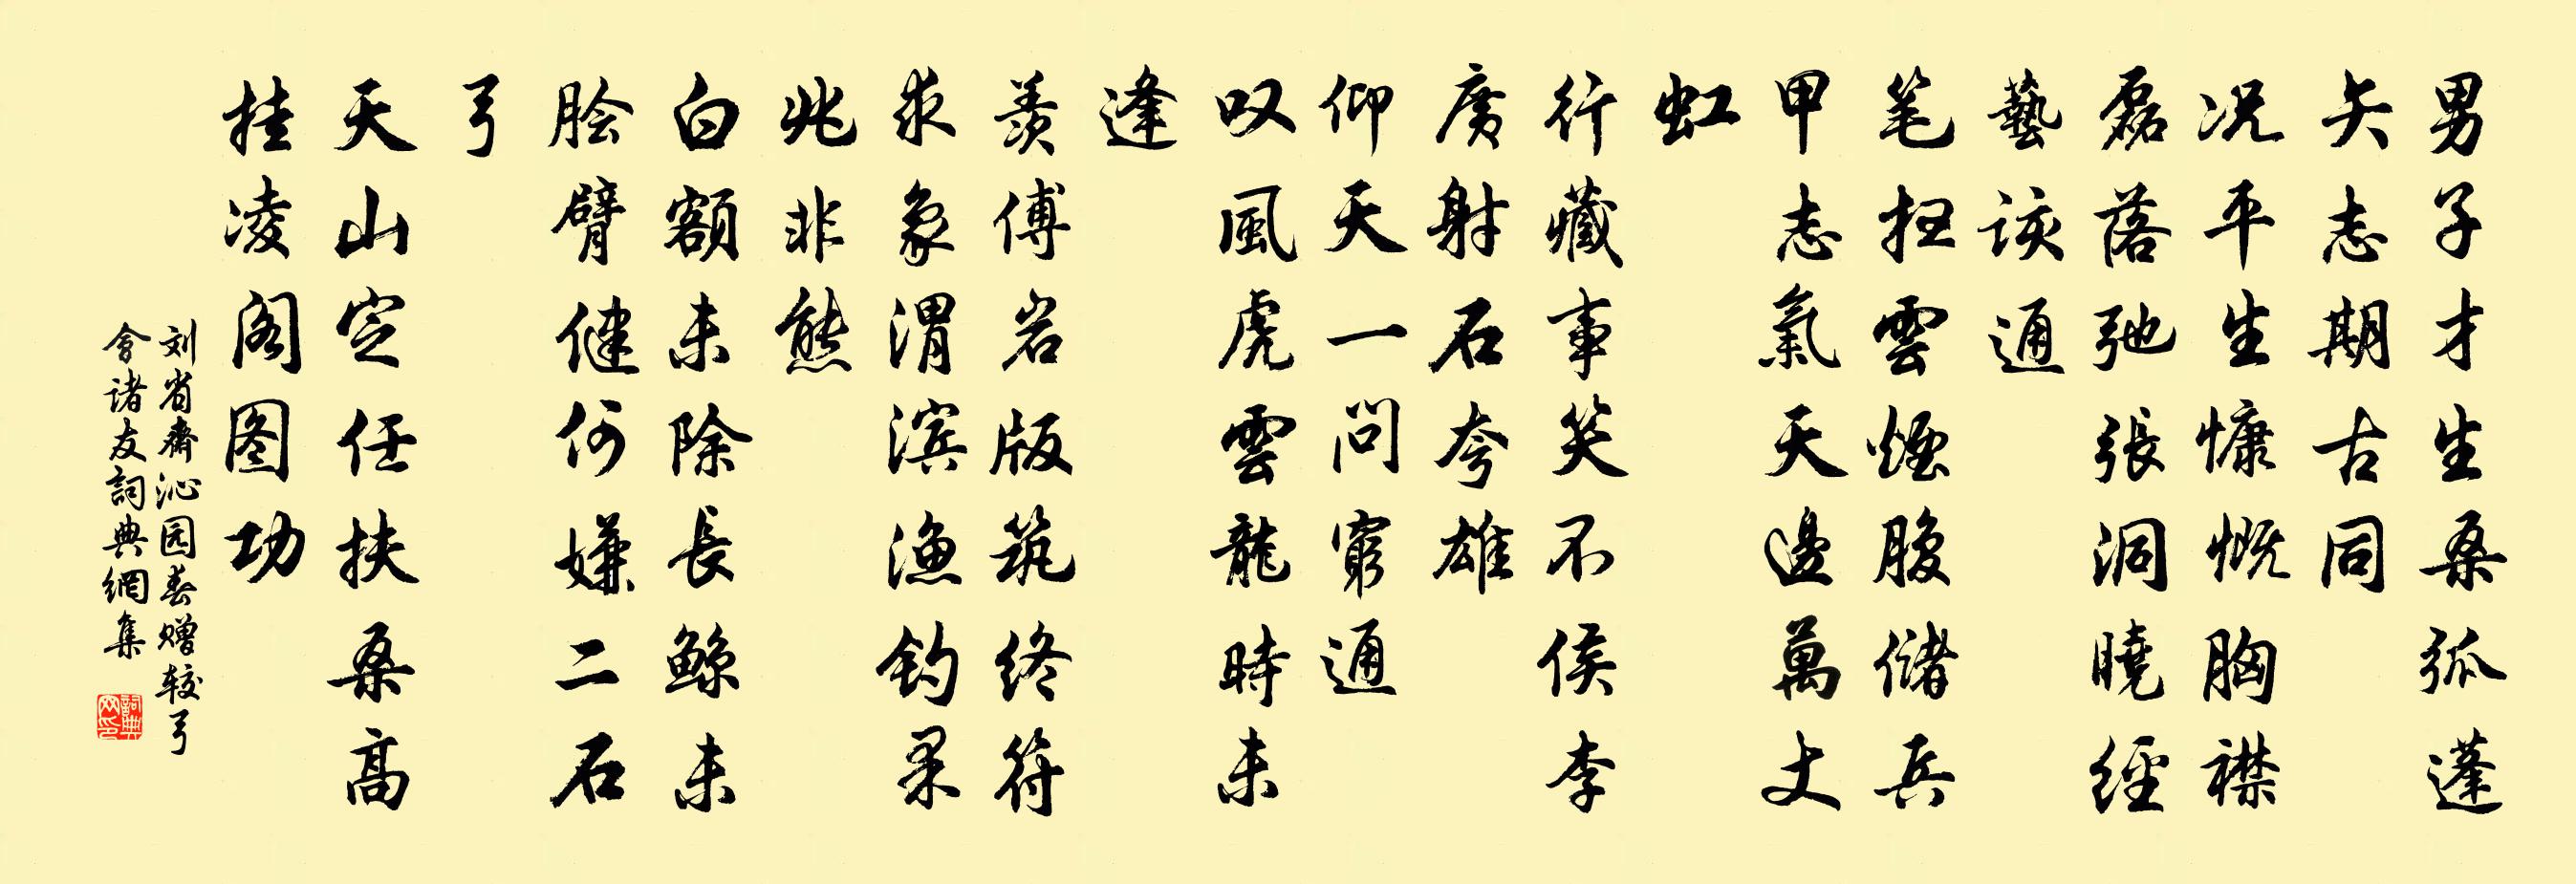 男子才生桑弧蓬
矢志期古同
况平生慷慨胸襟
磊落弛張洞曉經
藝該通
笔扫雲煙腹儲兵
甲志氣天邊萬丈
虹
行藏事笑不侯李
廣射石夸雄
仰天一問窮通
叹風虎雲龍時未
逢
羡傅岩版筑终符
求象渭滨渔钓果
兆非熊
白额未除長鲸未
脍臂健何嫌二石
弓
天山定任扶桑高
挂凌阁图功
刘省齋沁园春赠较弓
會诸友詞典網集
詞典网印